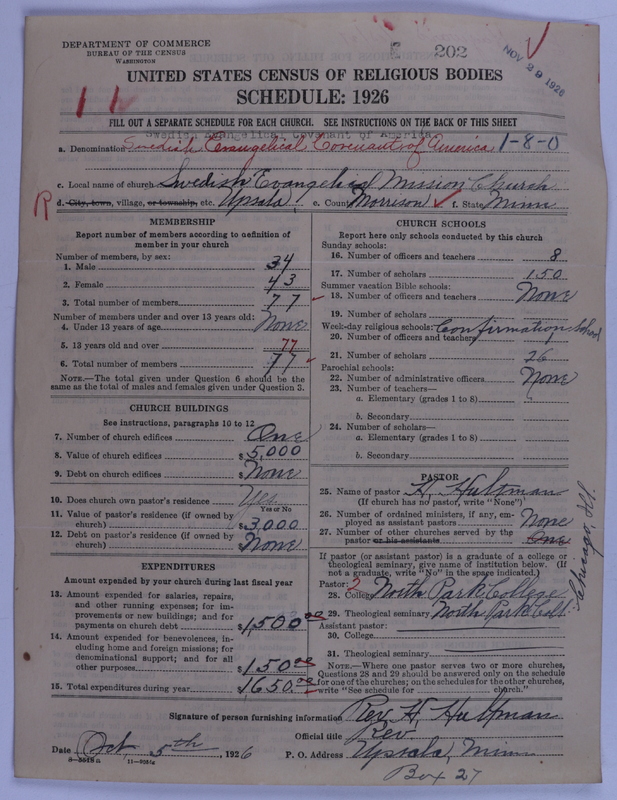 DEPARTMENT OF COMMERCE
BUREAU OF THE CENSUS
WASHINGTON
E 202
NOV 29 1926
UNITED STATES CENSUS OF RELIGIOUS BODIES
SCHEDULE: 1926
FILL OUT A SEPARATE SCHEDULE FOR EACH CHURCH. SEE INSTRUCTIONS ON THE BACK OF THIS SHEET
Swedish Evangelical Covenant of America
a. Denomination Swedish Evangelical Covenant of America 1-8-0
c. Local name of church Swedish Evangelical Mission Church
R d. City, town, village, or township, etc. Upsala e. County Morrison f. State Minn
MEMBERSHIP
Report number of members according to definition of member in your church
Number of members, by sex:
1. Male 34
2. Female 43
3. Total number of members 77
Number of members under and over 13 years old:
4. Under 13 years of age None
5. 13 years old and over 77
6. Total number of members 77
NOTE.—The total given under Question 6 should be the
same as the total of males and females given under Question 3.
CHURCH BUILDINGS
See instructions, paragraphs 10 to 12
7. Number of church edifices One
8. Value of church edifices $5,000
9. Debt on church edifices $None
10. Does church own pastor's residence Yes
Yes or No
11. Value of pastor's residence (if owned by
church) $3,000
12. Debt on pastor's residence (if owned by
church) $None
EXPENDITURES
Amount expended by your church during last fiscal year
13. Amount expended for salaries, repairs,
and other running expenses; for im-
provements or new buildings; and for
payments on church debt $1,500.00
14. Amount expended for benevolences, in-
cluding home and foreign missions; for
denominational support; and for all
other purposes $150.00
15. Total expenditures during year $1650.00
CHURCH SCHOOLS
Report here only schools conducted by this church
Sunday schools:
16. Number of officers and teachers 8
17. Number of scholars 150
Summer vacation Bible schools:
18. Number of officers and teachers None
19. Number of scholars
Week-day religious schools: Confirmation School
20. Number of officers and teachers
21. Number of scholars 26
Parochial schools:
22. Number of administrative officers None
23. Number of teachers—
a. Elementary (grades 1 to 8)
b. Secondary
24. Number of scholars—
a. Elementary (grades 1 to 8)
b. Secondary
PASTOR
25. Name of pastor H. Hultman
(If church has no pastor, write "None")
26. Number of ordained ministers, if any, em-
ployed as assistant pastors None
27. Number of other churches served by the
pastor or his assistants One
If pastor (or assistant pastor) is a graduate of a college or
theological seminary, give name of institution below. (If
not a graduate, write "No" in the space indicated.)
Pastor: 2
28. College North Park College
29. Theological seminary North Park Coll.
Chicago, Ill.
Assistant pastor:
30. College
31. Theological seminary
NOTE.—Where one pastor serves two or more churches,
Questions 28 and 29 should be answered only on the schedule
for one of the churches; on the schedules for the other churches,
write "See schedule for church."
Signature of person furnishing information Rev. H. Hultman
Official title Rev
Date Oct. 5th, 1926 P. O. Address Upsala, Minn
Box 27